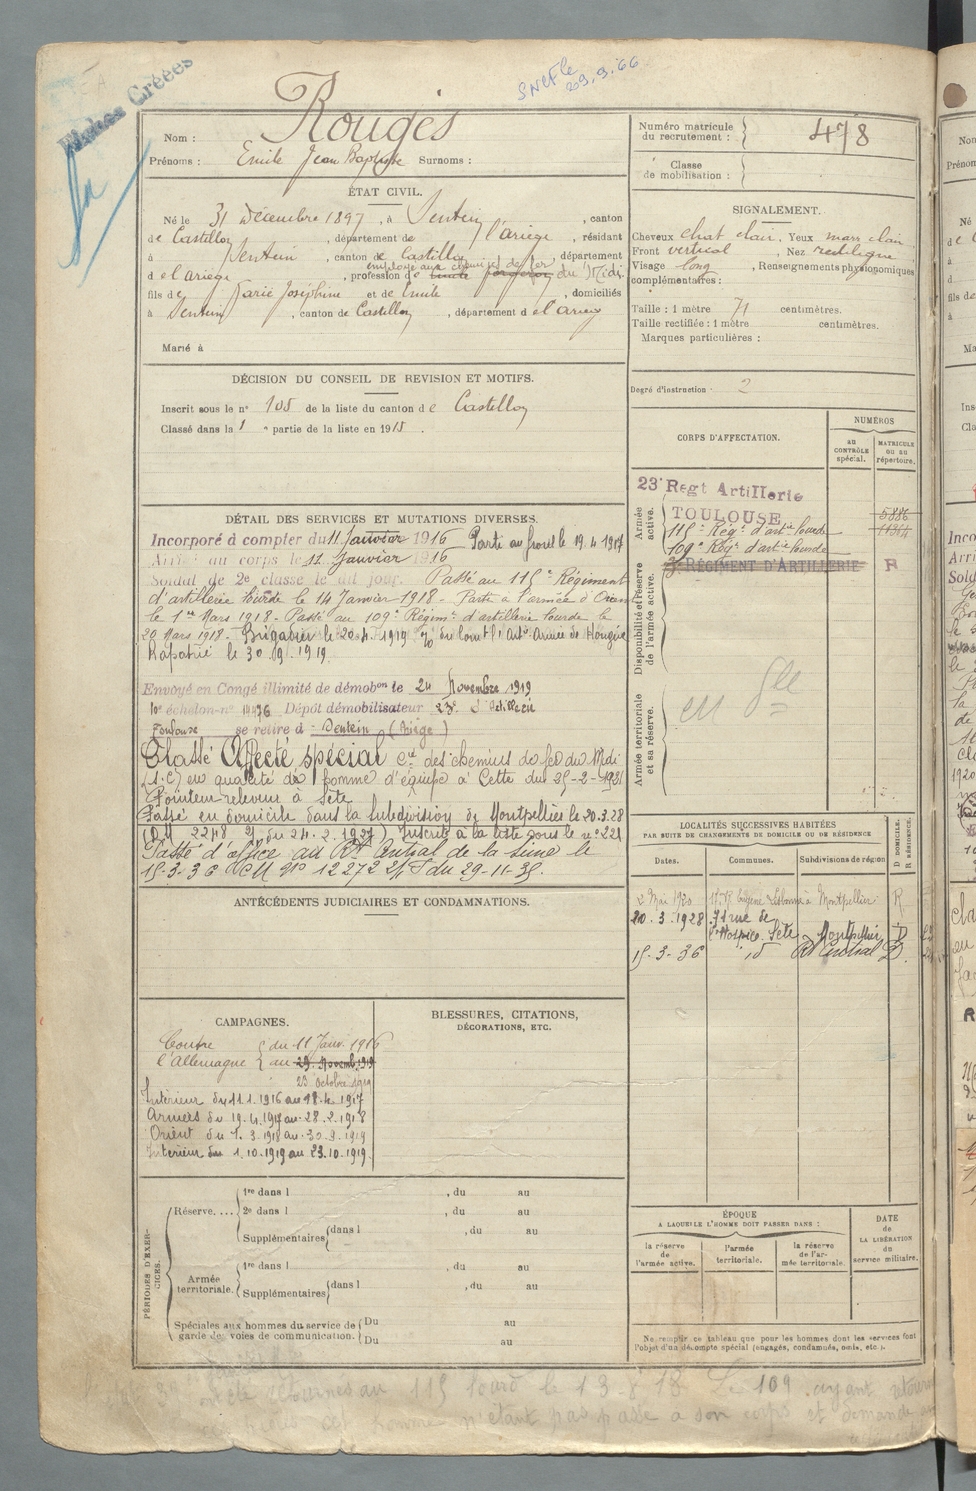 Fiches Créées
SNCF le
29.9.66
Nom : Rougés
Prénoms : Emile Jean Baptiste Surnoms :
Numéro matricule
du recrutement : 478
Classe
de mobilisation :
ÉTAT CIVIL.
Né le 31 Décembre 1897, à Sentein, canton
de Castillon, département de l'Ariège, résidant
à Sentein, canton de Castillon, département
employé aux chemins de fer
d e l'Ariège, profession de forgeron du Midi
fils de Marie Joséphine et de Emile, domiciliés
à Sentein, canton de Castillon, département d e l'Ariège
Marié à
SIGNALEMENT.
Cheveux chat. clair, Yeux marr. clair
Front vertical, Nez rectiligne
Visage long, Renseignements physionomiques
complémentaires :
Taille : 1 mètre 71 centimètres.
Taille rectifiée : 1 mètre centimètres.
Marques particulières :
Degré d'instruction : 2
DÉCISION DU CONSEIL DE REVISION ET MOTIFS.
Inscrit sous le n° 105 de la liste du canton de Castillon
Classé dans la 1 e partie de la liste en 1915.
DÉTAIL DES SERVICES ET MUTATIONS DIVERSES.
Incorporé à compter du 11 Janvier 1916 Parti au front le 19.4.1917
Arrivé au corps le 11 Janvier 1916
Soldat de 2e classe le dit jour. Passé au 115e Régiment
d'artillerie lourde le 14 Janvier 1918 - Parti à l'armée d'Orient
le 1er Mars 1918 - Passé au 109e Régimt d'artillerie lourde le
20 Mars 1918 - Brigadier le 20.4.1919 Armée de Hongrie
Rapatrié le 30.9.1919.
Envoyé en Congé illimité de démobon le 24 Novembre 1919
10e échelon - n° 14476 Dépôt démobilisateur 23e d'artillerie
Toulouse se retire à Sentein (Ariège)
Classé Affecté spécial Cie des chemins de fer du Midi
(S.C) en qualité de homme d'équipe à Cette du 25-2-1921
Pointeur releveur à Sète
Passé en domicile dans la subdivision de Montpellier le 20.3.28
(DM 2248 du 24.2.1927) Inscrit à la liste sous le n° 221
Passé d'office au Rt Central de la Seine le
15-3-36 DCM n° 12272 du 29-11-35.
CORPS D'AFFECTATION.
NUMÉROS
au
CONTRÔLE
spécial.
MATRICULE
ou au
répertoire.
Armée
active.
23e Regt Artillerie
TOULOUSE 5886
115e Régt d'artie lourde 11364
109e Régt d'artie lourde
RÉGIMENT D'ARTILLERIE R
Disponibilité et réserve
de l'armée active.
Armée territoriale
et sa réserve.
LOCALITÉS SUCCESSIVES HABITÉES
PAR SUITE DE CHANGEMENTS DE DOMICILE OU DE RÉSIDENCE
Dates.
Communes.
Subdivisions de région
D DOMICILE.
R RÉSIDENCE.
2 Mai 1920 17 R. Eugène Lisbonne à Montpellier R
20.3.1928 71 rue de
l'Hospice Sète Montpellier D
15-3-36 id Rt Central D.
ANTÉCÉDENTS JUDICIAIRES ET CONDAMNATIONS.
CAMPAGNES.
Contre du 11 Janv. 1916
l'Allemagne au 29 Novemb. 1919
23 Octobre 1919
Intérieur du 11.1.1916 au 18.4.1917
Armées du 19.4.1917 au 28.2.1918
Orient du 1.3.1918 au 30.9.1919
Intérieur du 1.10.1919 au 23.10.1919.
BLESSURES, CITATIONS,
DÉCORATIONS, ETC.
PÉRIODES D'EXER-
CICES.
Réserve....
1re dans l , du au
2e dans l , du au
Supplémentaires dans l , du au
Armée
territoriale.
1re dans l , du au
Supplémentaires dans l , du au
Spéciales aux hommes du service de
garde des voies de communication.
Du au
Du au
ÉPOQUE
A LAQUELLE L'HOMME DOIT PASSER DANS :
la réserve
de
l'armée active.
l'armée
territoriale.
la réserve
de l'ar-
mée territoriale.
DATE
de
LA LIBÉRATION
du
service militaire.
Ne remplir ce tableau que pour les hommes dont les services font
l'objet d'un décompte spécial (engagés, condamnés, omis, etc.).
au 115 lourd le 13-8-18 Le 109 ayant
cet homme n'étant pas passé à son corps et demande